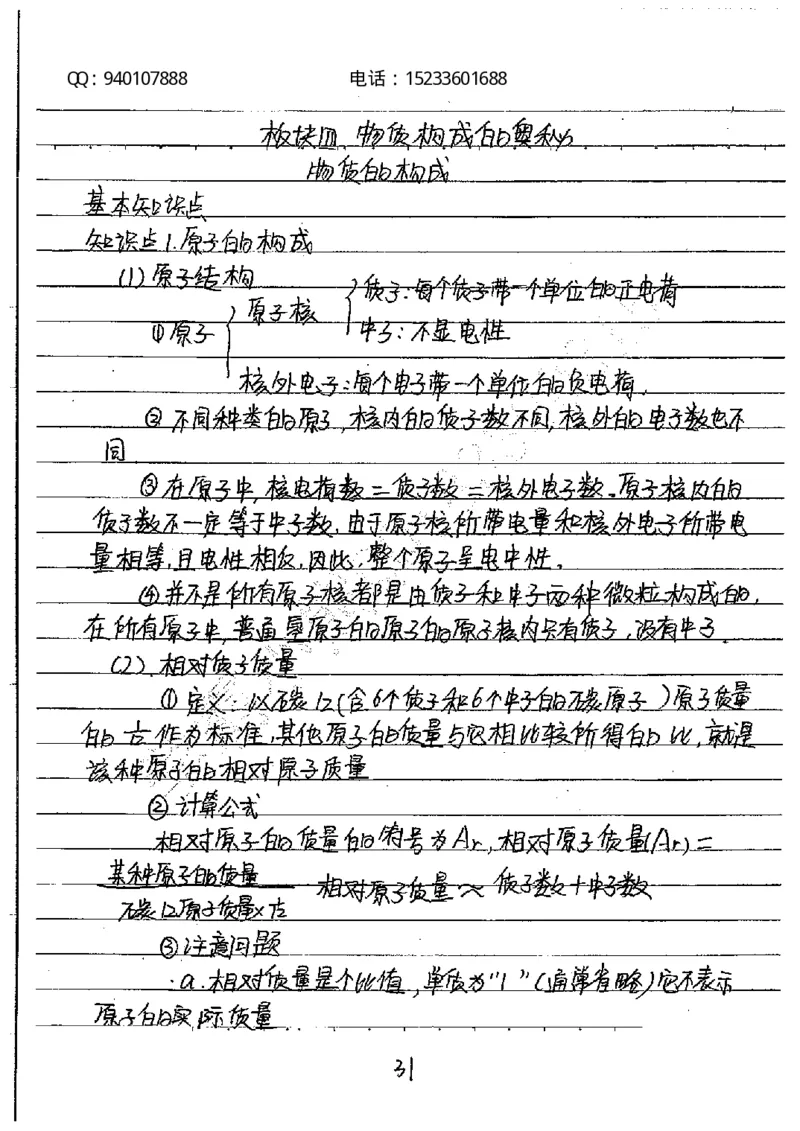 QQ：940107888 电话：15233601688
板块四、物质构成的奥秘
物质的构成
基本知识点
知识点1.原子的构成
(1)原子结构
质子:每个质子带一个单位的正电荷
原子核
①原子 中子:不显电性
核外电子:每个电子带一个单位的负电荷.
②不同种类的原子,核内的质子数不同,核外的电子数也不
同
③在原子中,核电荷数=质子数=核外电子数。原子核内的
质子数不一定等于中子数,由于原子核所带电量和核外电子所带电
量相等,且电性相反,因此,整个原子呈电中性。
④并不是所有原子核都是由质子和中子两种微粒构成的.
在所有原子中,普通氢原子的原子的原子核内只有质子,没有中子.
(2).相对质子质量
①定义:以碳12(含6个质子和6个中子的碳原子)原子质量
的 作为标准,其他原子的质量与它相比较所得的比,就是
该种原子的相对原子质量
②计算公式
相对原子的质量的符号为Ar,相对原子质量(Ar)=
某种原子的质量 相对原子质量≈质子数+中子数
碳12原子质量×
③注意问题
a.相对质量是个比值,单位为"1"(通常省略)它不表示
原子的实际质量.
31